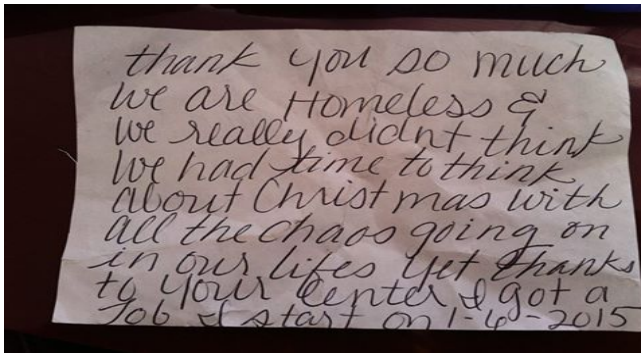 thank you so much
we are Homeless &
we really didnt think
we had time to think
about Christmas with
all the chaos going on
in our lifes yet thanks
to your center I got a
Job I start on 1-6-2015